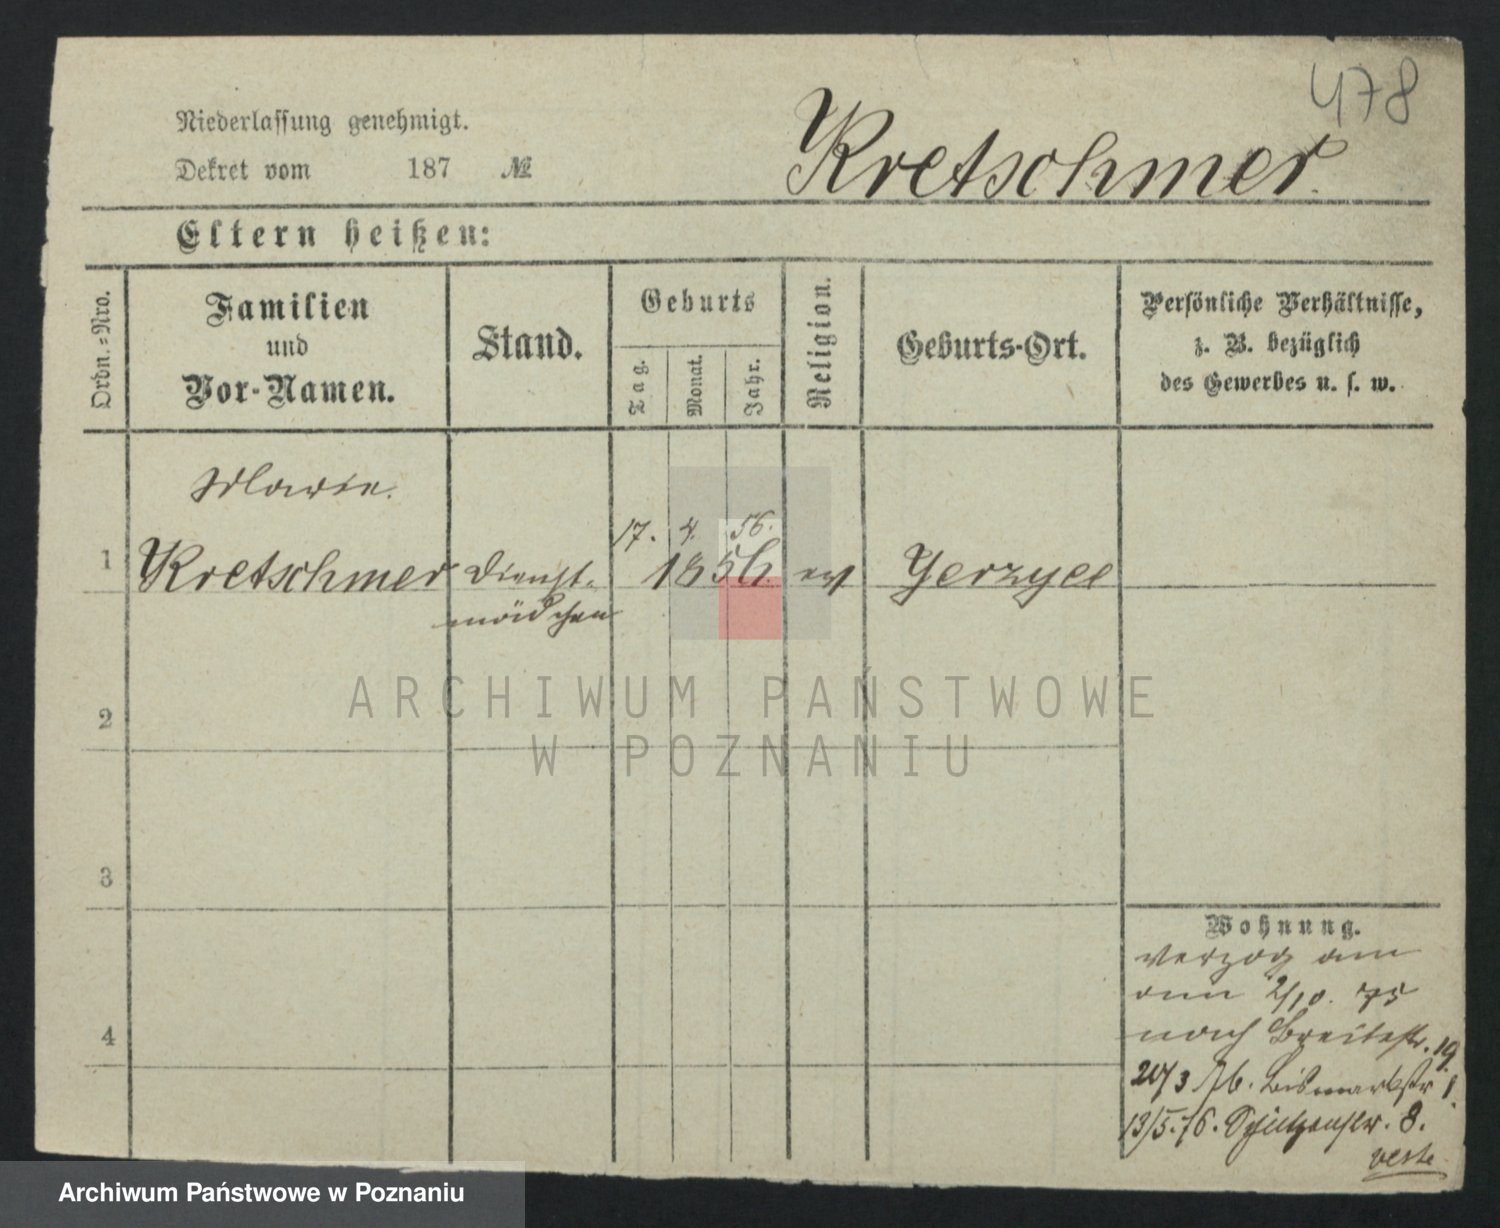 478
Niederlassung genehmigt.
Dekret vom 187 №
Kretschmer.
Eltern heißen:
Ordn.=Nro.
Familien
und
Vor-Namen.
Stand.
Geburts
Tag.
Monat.
Jahr.
Religion.
Geburts-Ort.
Persönliche Verhältnisse,
z. B. bezüglich
des Gewerbes u. s. w.
Marie.
17. 4. 56.
1 Kretschmer Dienst- 1856. ev Yerzyce
mädchen
2
3
4
ARCHIWUM PAŃSTWOWE
W POZNANIU
Wohnung.
verzog am
2/10. 75
nach Breitestr. 19.
20/3 76. Bismarkstr 1.
13/5.76. Schützenstr. 8.
verte
Archiwum Państwowe w Poznaniu